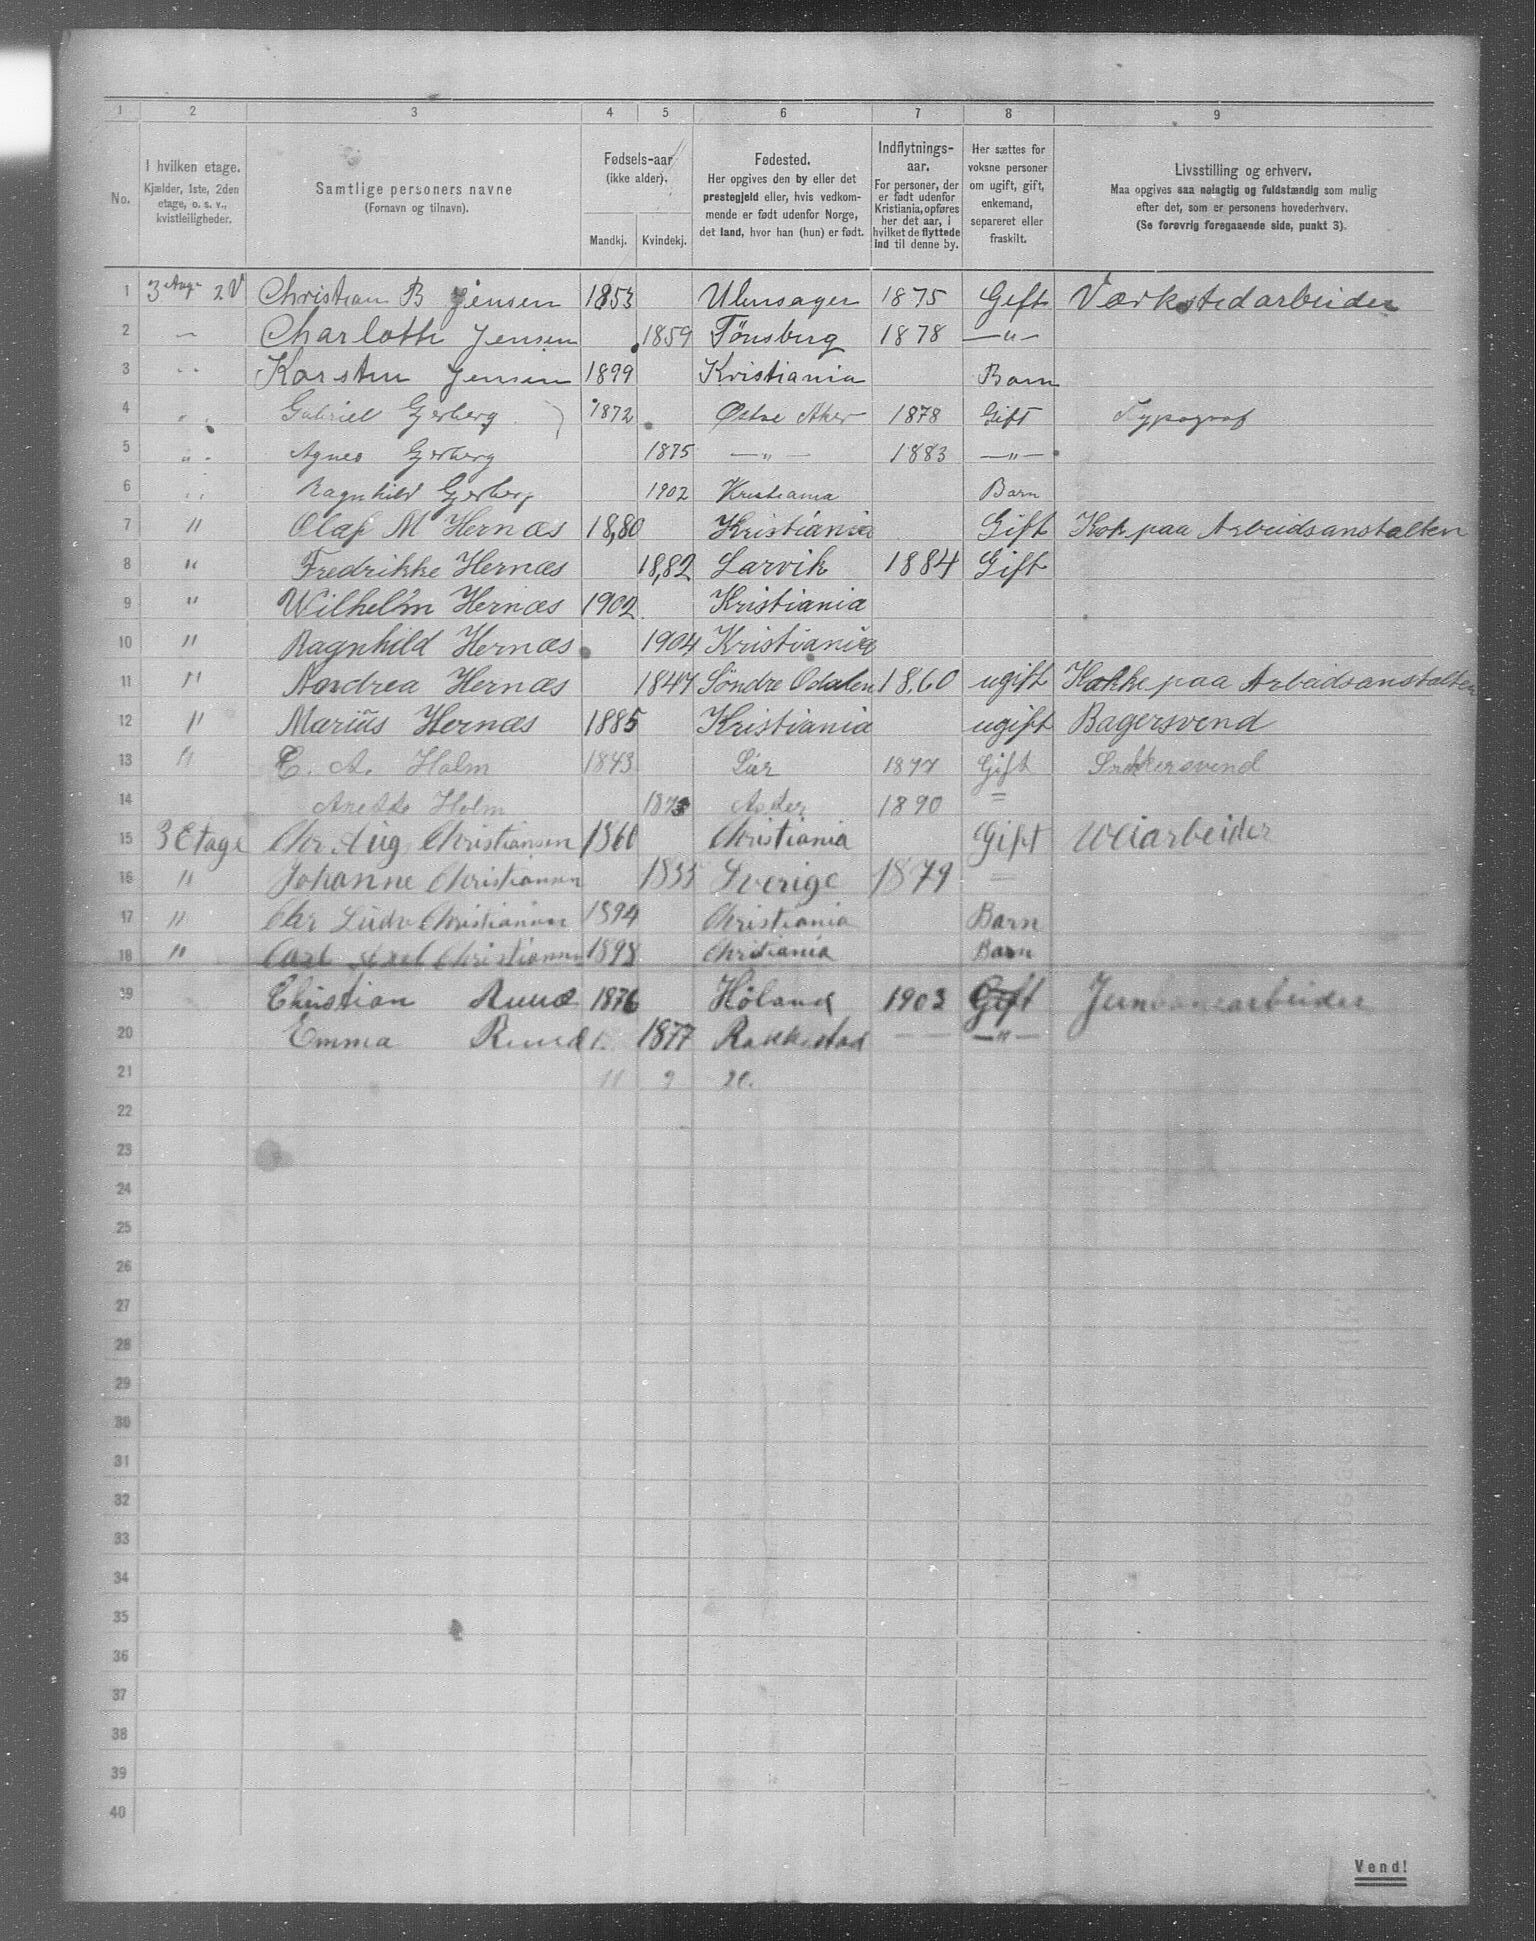 1 2 3 4 5 6 7 8 9
No.
I hvilken etage.
Kjælder, 1ste, 2den
etage, o. s. v.,
kvistleiligheder.
Samtlige personers navne
(Fornavn og tilnavn).
Fødsels-aar
(ikke alder).
Mandkj. Kvindekj.
Fødested.
Her opgives den by eller det
prestegjeld eller, hvis vedkom-
mende er født udenfor Norge,
det land, hvor han (hun) er født.
Indflytnings-
aar.
For personer, der
er født udenfor
Kristiania, opføres
her det aar, i
hvilket de flyttede
ind til denne by.
Her sættes for
voksne personer
om ugift, gift,
enkemand,
separeret eller
fraskilt.
Livsstilling og erhverv.
Maa opgives saa nøiagtig og fuldstændig som mulig
efter det, som er personens hovederhverv.
(Se forøvrig foregaaende side, punkt 3).
1 3 etage 2 V Christian B Jensen 1853 Ulensager 1875 Gift Værkstedarbeider
2 — Charlotte Jensen 1859 Tønsberg 1878 —"—
3 " Karsten Jensen 1899 Kristiania Barn
4 " Gabriel Gjerberg 1872 Østre Aker 1878 Gift Typograf
5 " Agnes Gjerberg 1875 —"— 1883 —"—
6 " Ragnhild Gjerberg 1902 Kristiania Barn
7 " Olaf M Hernæs 1880 Kristiania Gift Kok paa Arbeidsanstalten
8 " Fredrikke Hernæs 1882 Larvik 1884 Gift
9 " Wilhelm Hernæs 1902 Kristiania
10 " Ragnhild Hernæs 1904 Kristiania
11 " Andrea Hernæs 1847 Søndre Odalen 1860 ugift Kokke paa Arbeidsanstalten
12 " Marius Hernæs 1885 Kristiania ugift Bagersvend
13 " C. A. Holm 1843 Lier 1877 Gift Snekkersvend
14 Anette Holm 1873 Asker 1890 =
15 3 Etage Chr Aug Christiansen 1860 Christiania Gift Veiarbeider
16 " Johanne Christiansen 1855 Sverige 1879 =
17 " Chr Ludv Christiansen 1894 Christiania Barn
18 " Carl Axel Christiansen 1898 Christiania Barn
19 Christian Ruud 1876 Høland 1903 Gift Jernbanearbeider
20 Emma Ruud 1877 Rakkestad — — —"—
21 11 9 20.
22
23
24
25
26
27
28
29
30
31
32
33
34
35
36
37
38
39
40
Vend!